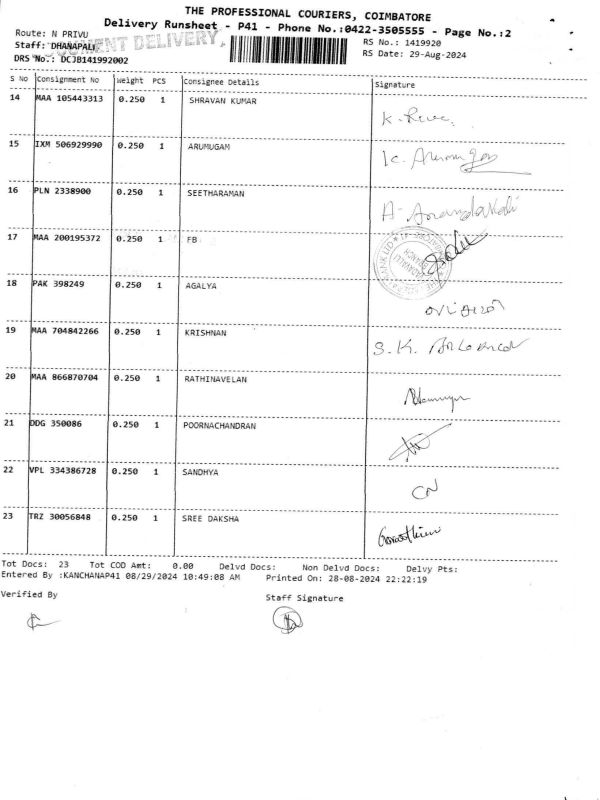 THE PROFESSIONAL COURIERS, COIMBATORE
Delivery Runsheet - P41 - Phone No.:0422-3505555 - Page No.:2
Route: N PRIVU
RS No.: 1419920
Staff: DHANAPALI
DOCUMENT DELIVERY,
RS Date: 29-Aug-2024
DRS No.: DCJB141992002
S No Consignment No Weight PCS Consignee Details Signature
14 MAA 105443313 0.250 1 SHRAVAN KUMAR
15 IXM 506929990 0.250 1 ARUMUGAM
16 PLN 2338900 0.250 1 SEETHARAMAN
17 MAA 200195372 0.250 1 FB
18 PAK 398249 0.250 1 AGALYA
19 MAA 704842266 0.250 1 KRISHNAN S.K.
20 MAA 866870704 0.250 1 RATHINAVELAN
21 DDG 350086 0.250 1 POORNACHANDRAN
22 VPL 334386728 0.250 1 SANDHYA CN
23 TRZ 30056848 0.250 1 SREE DAKSHA
Tot Docs: 23 Tot COD Amt: 0.00 Delvd Docs: Non Delvd Docs: Delvy Pts:
Entered By :KANCHANAP41 08/29/2024 10:49:08 AM Printed On: 28-08-2024 22:22:19
Verified By Staff Signature